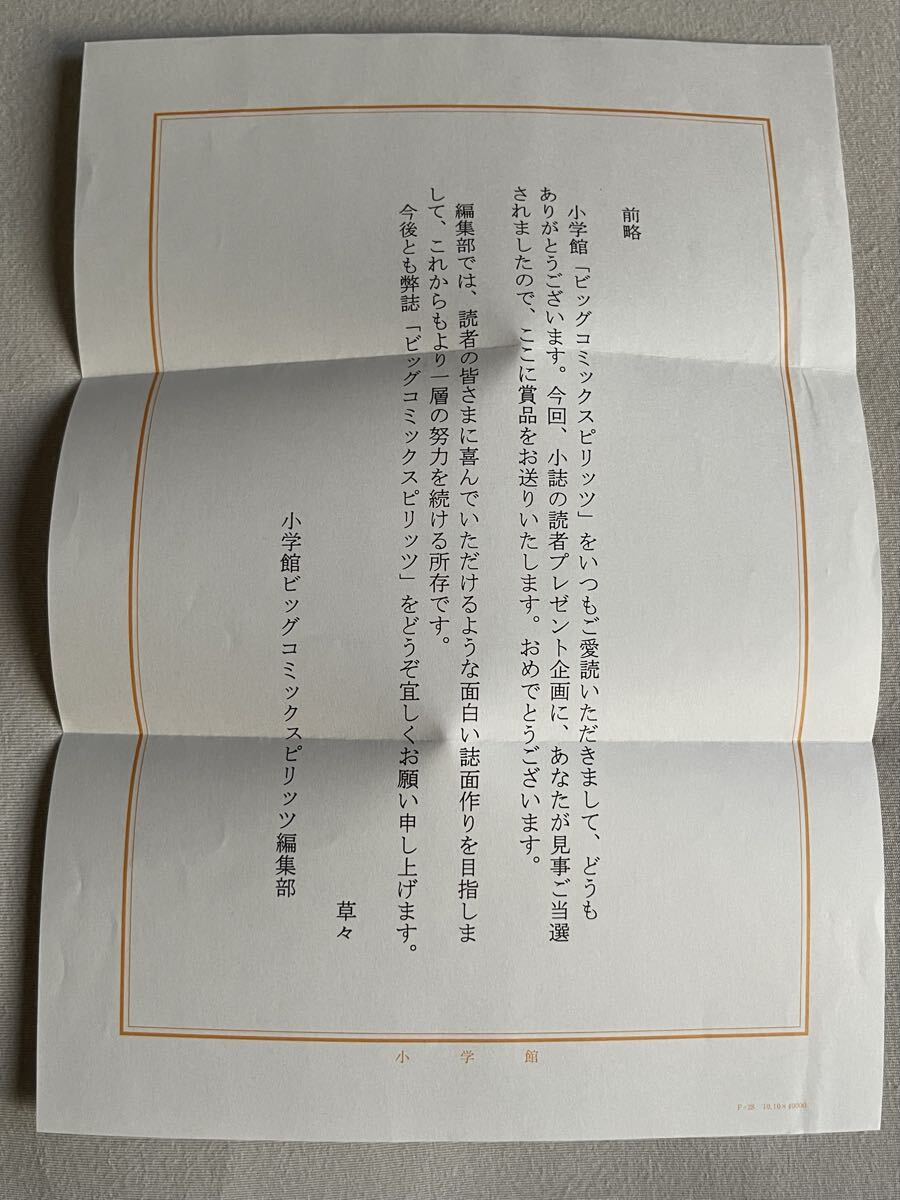 前略
小学館「ビッグコミックスピリッツ」をいつもご愛読いただきまして、どうも
ありがとうございます。今回、小誌の読者プレゼント企画に、あなたが見事ご当選
されましたので、ここに賞品をお送りいたします。おめでとうございます。
編集部では、読者の皆さまに喜んでいただけるような面白い誌面作りを目指しま
して、これからもより一層の努力を続ける所存です。
今後とも弊誌「ビッグコミックスピリッツ」をどうぞ宜しくお願い申し上げます。
草々
小学館ビッグコミックスピリッツ編集部
小学館
P-28 10.10×40000